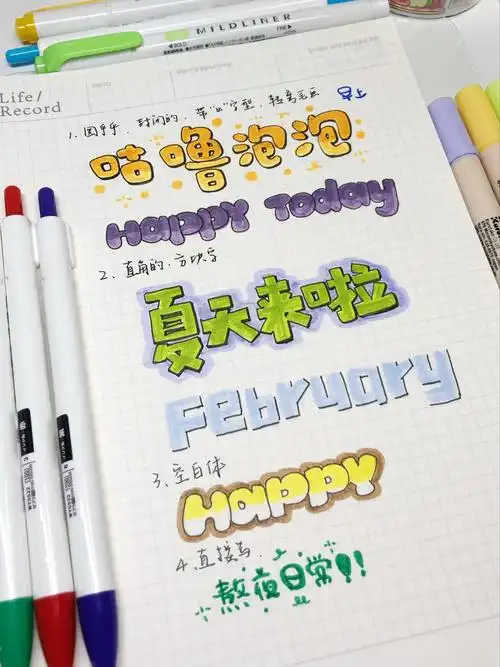 MILDLINER
BOLD
Life/
Record
1、圆乎乎、封闭的、带“口”字型、轻离毛互 早上
咕噜泡泡
Happy Today
2、直角的、方块字
夏天来啦
February
3、空白体
Happy
4、直接写、
熬夜日常!!